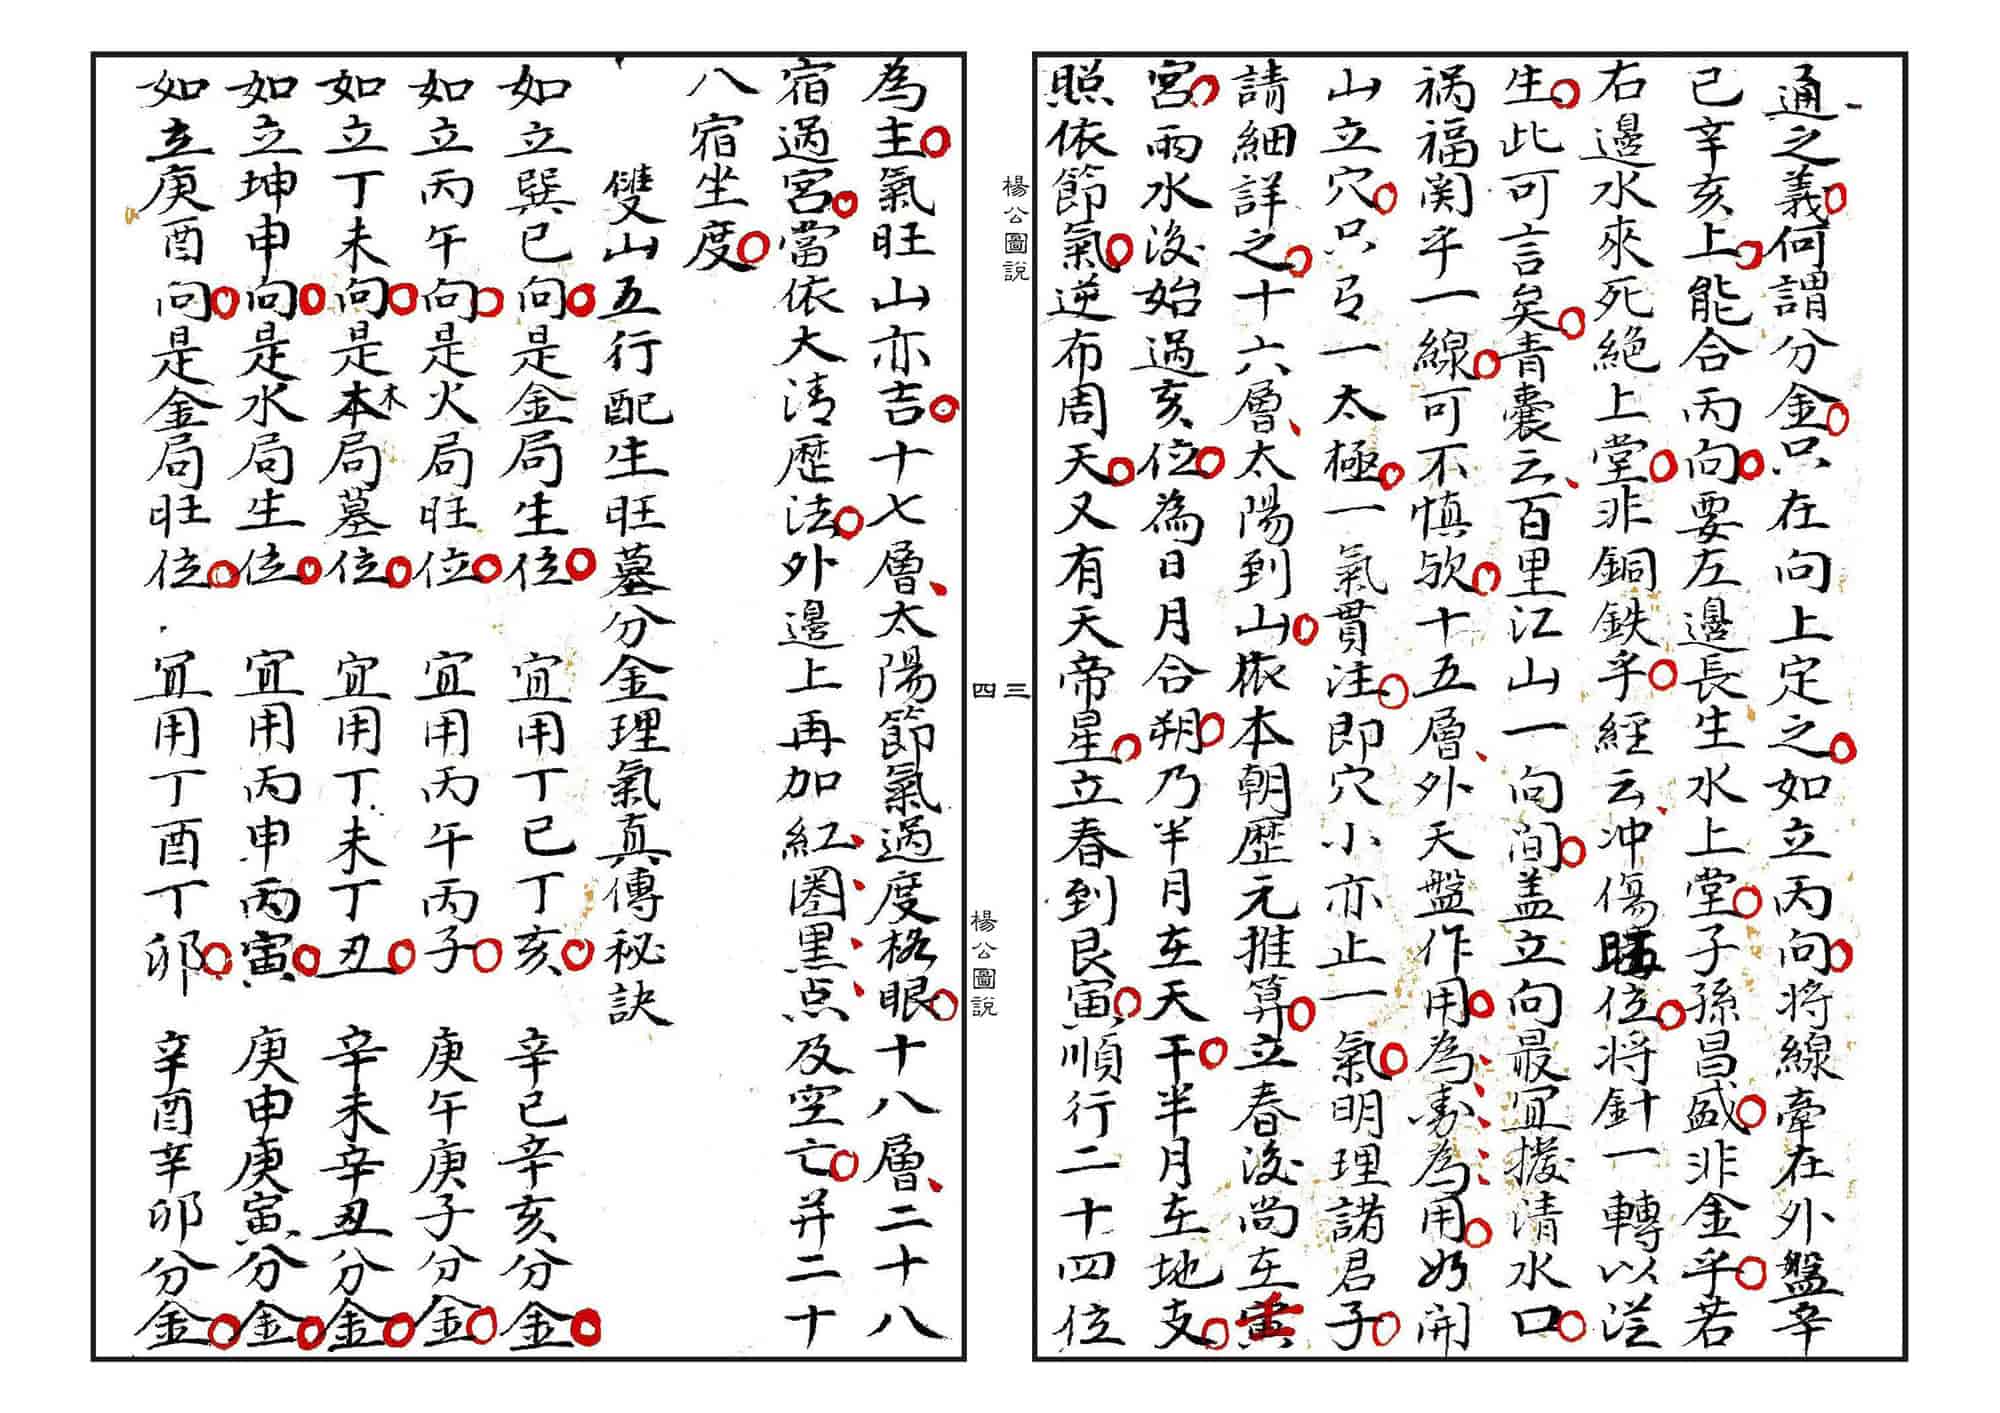 通之義何謂分金只在向上定之如立丙向将線牽在外盤辛
已辛亥上能合丙向要左邉長生水上堂子孫昌盛非金乎若
右邉水來死絕上堂非銅鉄乎經云冲傷位将針一轉以從
生此可言矣青囊云百里江山一向间盖立向最宜撥清水口
祸福関乎一線可不慎欤十五層外天盤作用為寿為用妁開
山立穴只号一太極一氣貫注即穴小亦止一氣明理諸君子
請細詳之十六層太陽到山依本朝歷元推算立春後尚在
宮雨水後始過亥位為日月合朔乃半月在天干半月在地支
照依節氣逆布周天又有天帝星立春到艮寅順行二十四位
楊公圖說
三
四
楊公圖說
為主氣旺山亦吉十七層太陽節氣過度格眼十八層二十八
宿過宮當依大清歷法外邉上再加紅圈黑点及空亡并二十
八宿坐度
雙山五行配生旺墓分金理氣真傳秘訣
如立巽巳向是金局生位 宜用丁巳丁亥 辛巳辛亥分金
如立丙午向是火局旺位 宜用丙午丙子 庚午庚子分金
如立丁未向是本木局墓位 宜用丁未丁丑 辛未辛丑分金
如立坤申向是水局生位 宜用丙申丙寅 庚申庚寅分金
如立庚酉向是金局旺位 宜用丁酉丁卯 辛酉辛卯分金